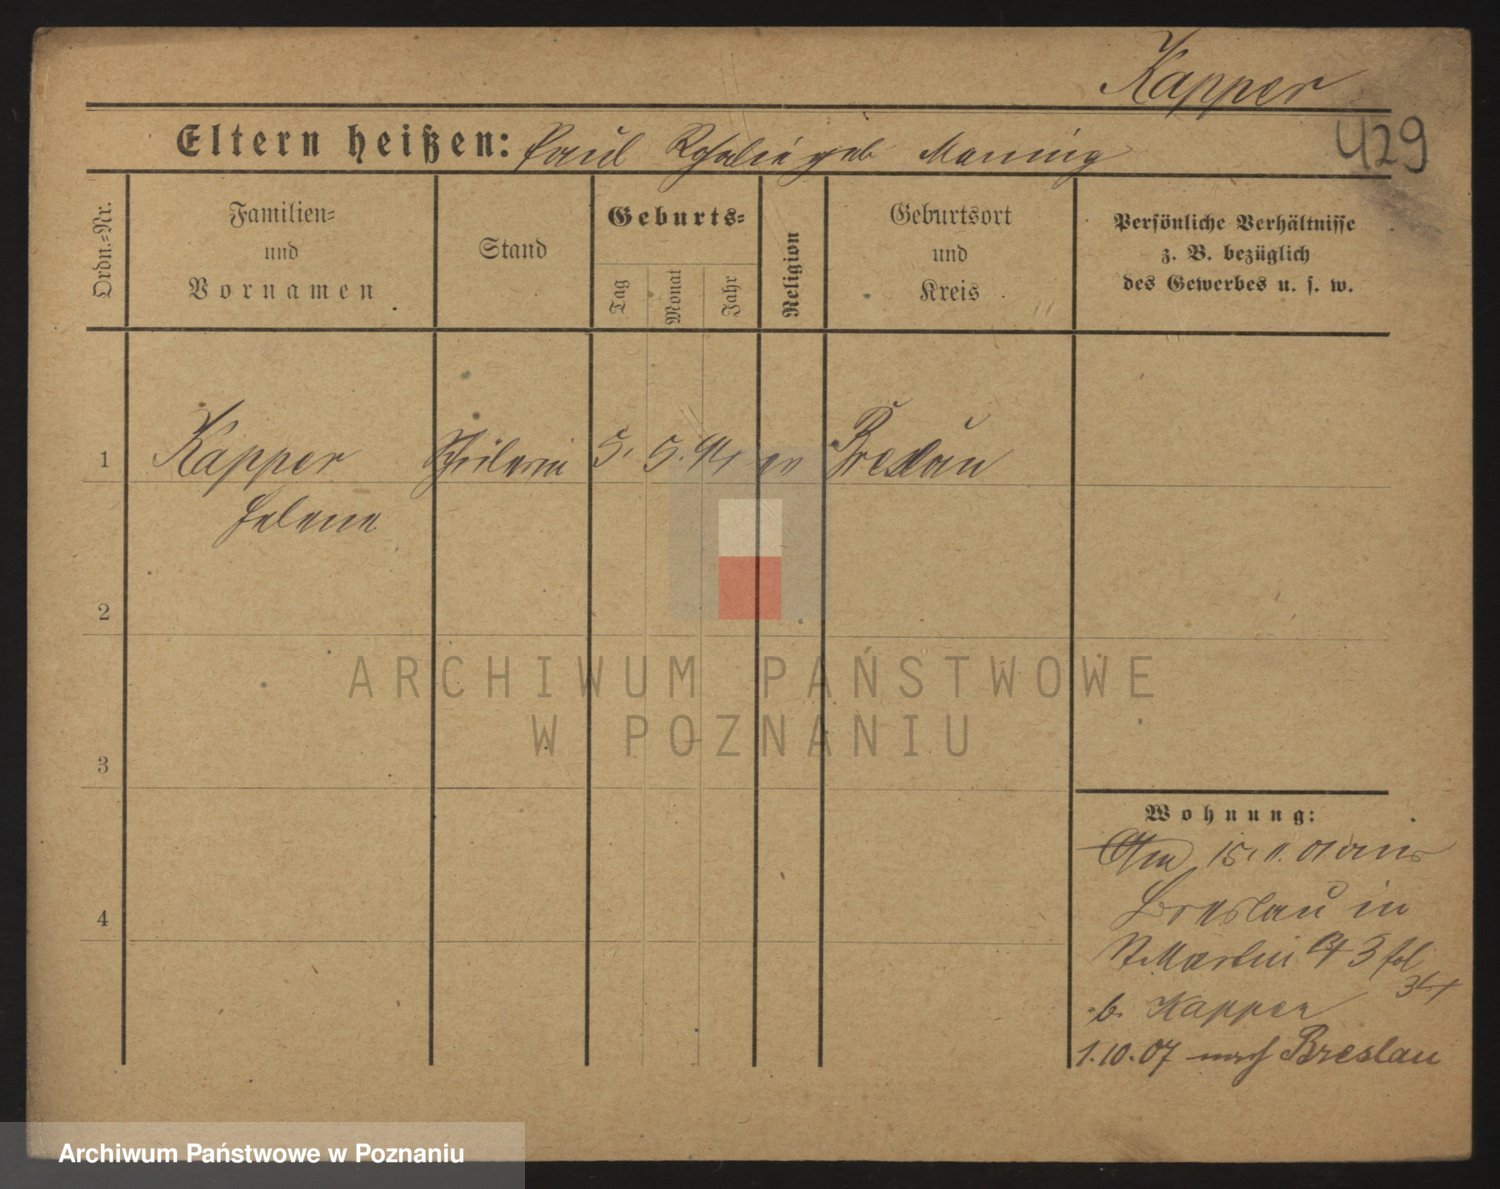 Kapper
429
Eltern heißen: Paul Rosalie geb Manning
Ordn.=Nr.
Familien=
und
Vornamen
Stand
Geburts=
Tag
Monat
Jahr
Religion
Geburtsort
und
Kreis
Persönliche Verhältnisse
z. B. bezüglich
des Gewerbes u. s. w.
1 Kapper Schülerin 5. 5. 94 ev Breslau
Helene
2
ARCHIWUM PAŃSTWOWE
W POZNANIU
3
Wohnung:
15. 11. 01 aus
4
Breslau in
St Martin 43 fol
34
b. Kapper
1.10.07 nach Breslau
Archiwum Państwowe w Poznaniu